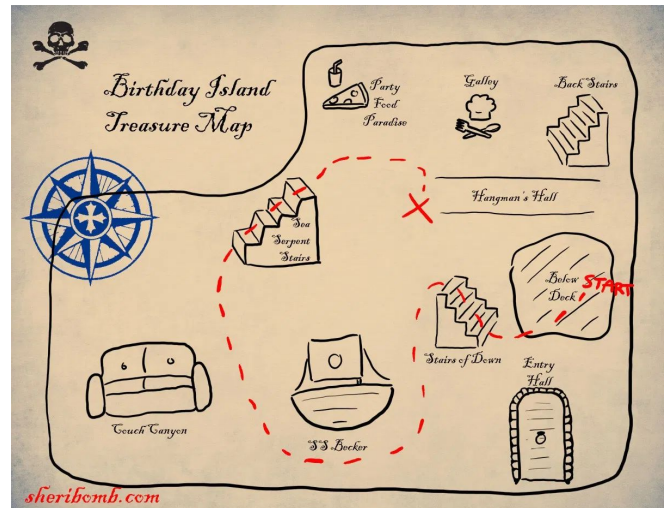 Birthday Island
Treasure Map
Party
Food
Paradise
Galley
Back Stairs
Hangman's Hall
Sea
Serpent
Stairs
Below
Deck
START
Stairs of Down
Entry
Hall
Couch Canyon
SS Becker
sheribomb.com